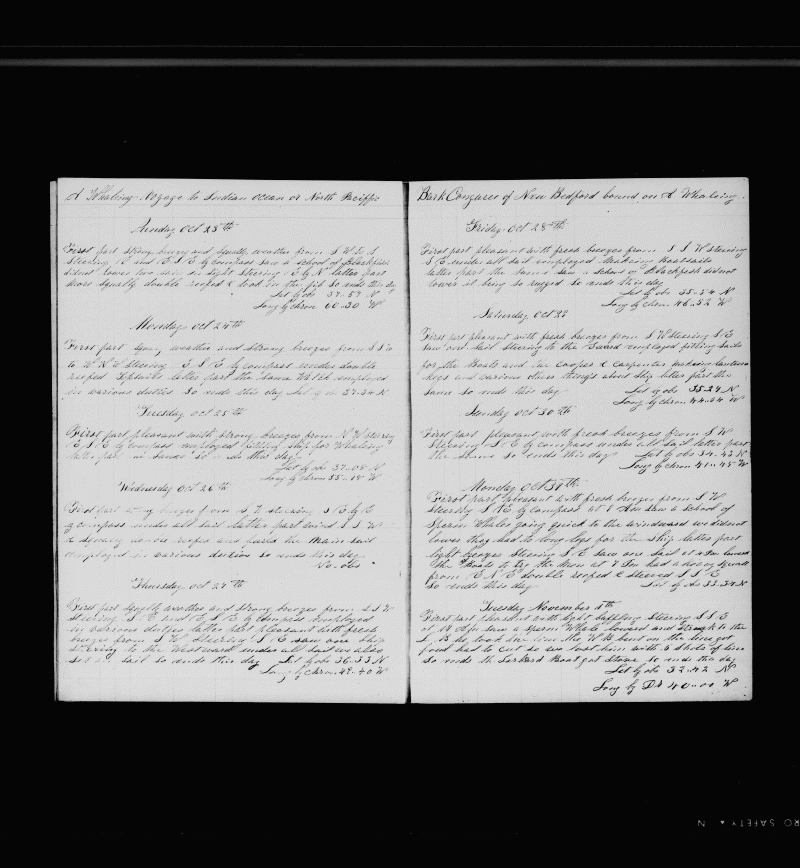 A Whaling Voyage to Indian Ocean or North Paciffic
Sunday Oct 23th
First part strong breeze and squally weather from S W to S
Steering E and E S E by compass saw a school of Blackfish
did not lower two sail in sight steering E by N latter part
more squally double reefed & took in the jib So ends this day
Lat by obs 37-57 N
Long by chron 60-30 W
Monday Oct 24th
First part weather and strong breezes from S S W
to W N W Steering E S E by compass under double
reefed Topsails latter part the Same Watch employed
in various duties So ends this day Lat by ob 37-34 N
Tuesday Oct 25th
First part pleasant with strong breezes from N W steering
E S E by compass employed fitting ship for Whaling
latter part the same So ends this day
Lat by obs 37-08 N
Long by chron 55-18 W
Wednesday Oct 26th
First part strong breezes from steering
by compass under all sail latter part wind S S W
& squally double reefed and furled the Main sail
employed in various duties so ends this day
No obs
Thursday Oct 27th
First part squally weather and strong breezes from S S W
Steering S E and E S E by compass employed
in various duties latter part pleasant with fresh
breezes from S W Steering S E saw one ship
steering to the Westward under all sail we also
sail so ends this day Lat by obs 36-33 N
Long by chron 49-40 W
Bark Congaree of New Bedford bound on A Whaling
Friday Oct 28th
First part pleasant with fresh breezes from S S W steering
S E under all sail employed Makeing Boatsails
latter part the same Saw a school of Blackfish did not
lower it being so rugged so ends this day
Lat by obs 35-54 N
Long by chron 46-52 W
Saturday Oct 29
First part pleasant with fresh breezes from S W Steering S E
saw one sail steering to the Eward employed fitting sails
for the Boats and Cooper & carpenter makeing lantern
kegs and various other things about ship latter part the
same so ends this day Lat by obs 35-24 N
Long by chron 44-04 W
Sunday Oct 30th
First part pleasant with fresh breezes from S W
Steering S E by compass under all sail latter part
the same so ends this day Lat by obs 34-43 N
Long by chron 41-45 W
Monday Oct 31th
First part pleasant with fresh breezes from S W
Steering S E by Compass at 8 Am saw a school of
Sperm Whales going quick to the windward we did not
lower they had to long legs for the ship latter part
light breezes Steering S E saw one sail at lowered
the Boats to try the Men at 7 Pm had a heavy squall
from E N E double reefed & steered S S E
so ends this day Lat by obs 33-34 N
Tuesday November 1th
First part pleasant with light baffling Steering S S E
at 10 Am saw a sperm Whale lowered and struck to the
L B he took line the W B bent on the line got
foul had to cut so we lost him with 3 shots of line
So ends the Larbord Boat got Stove so ends the day
Lat by obs 32-42 N
Long by DR 40-00 W
RO SAFETY ▲ N